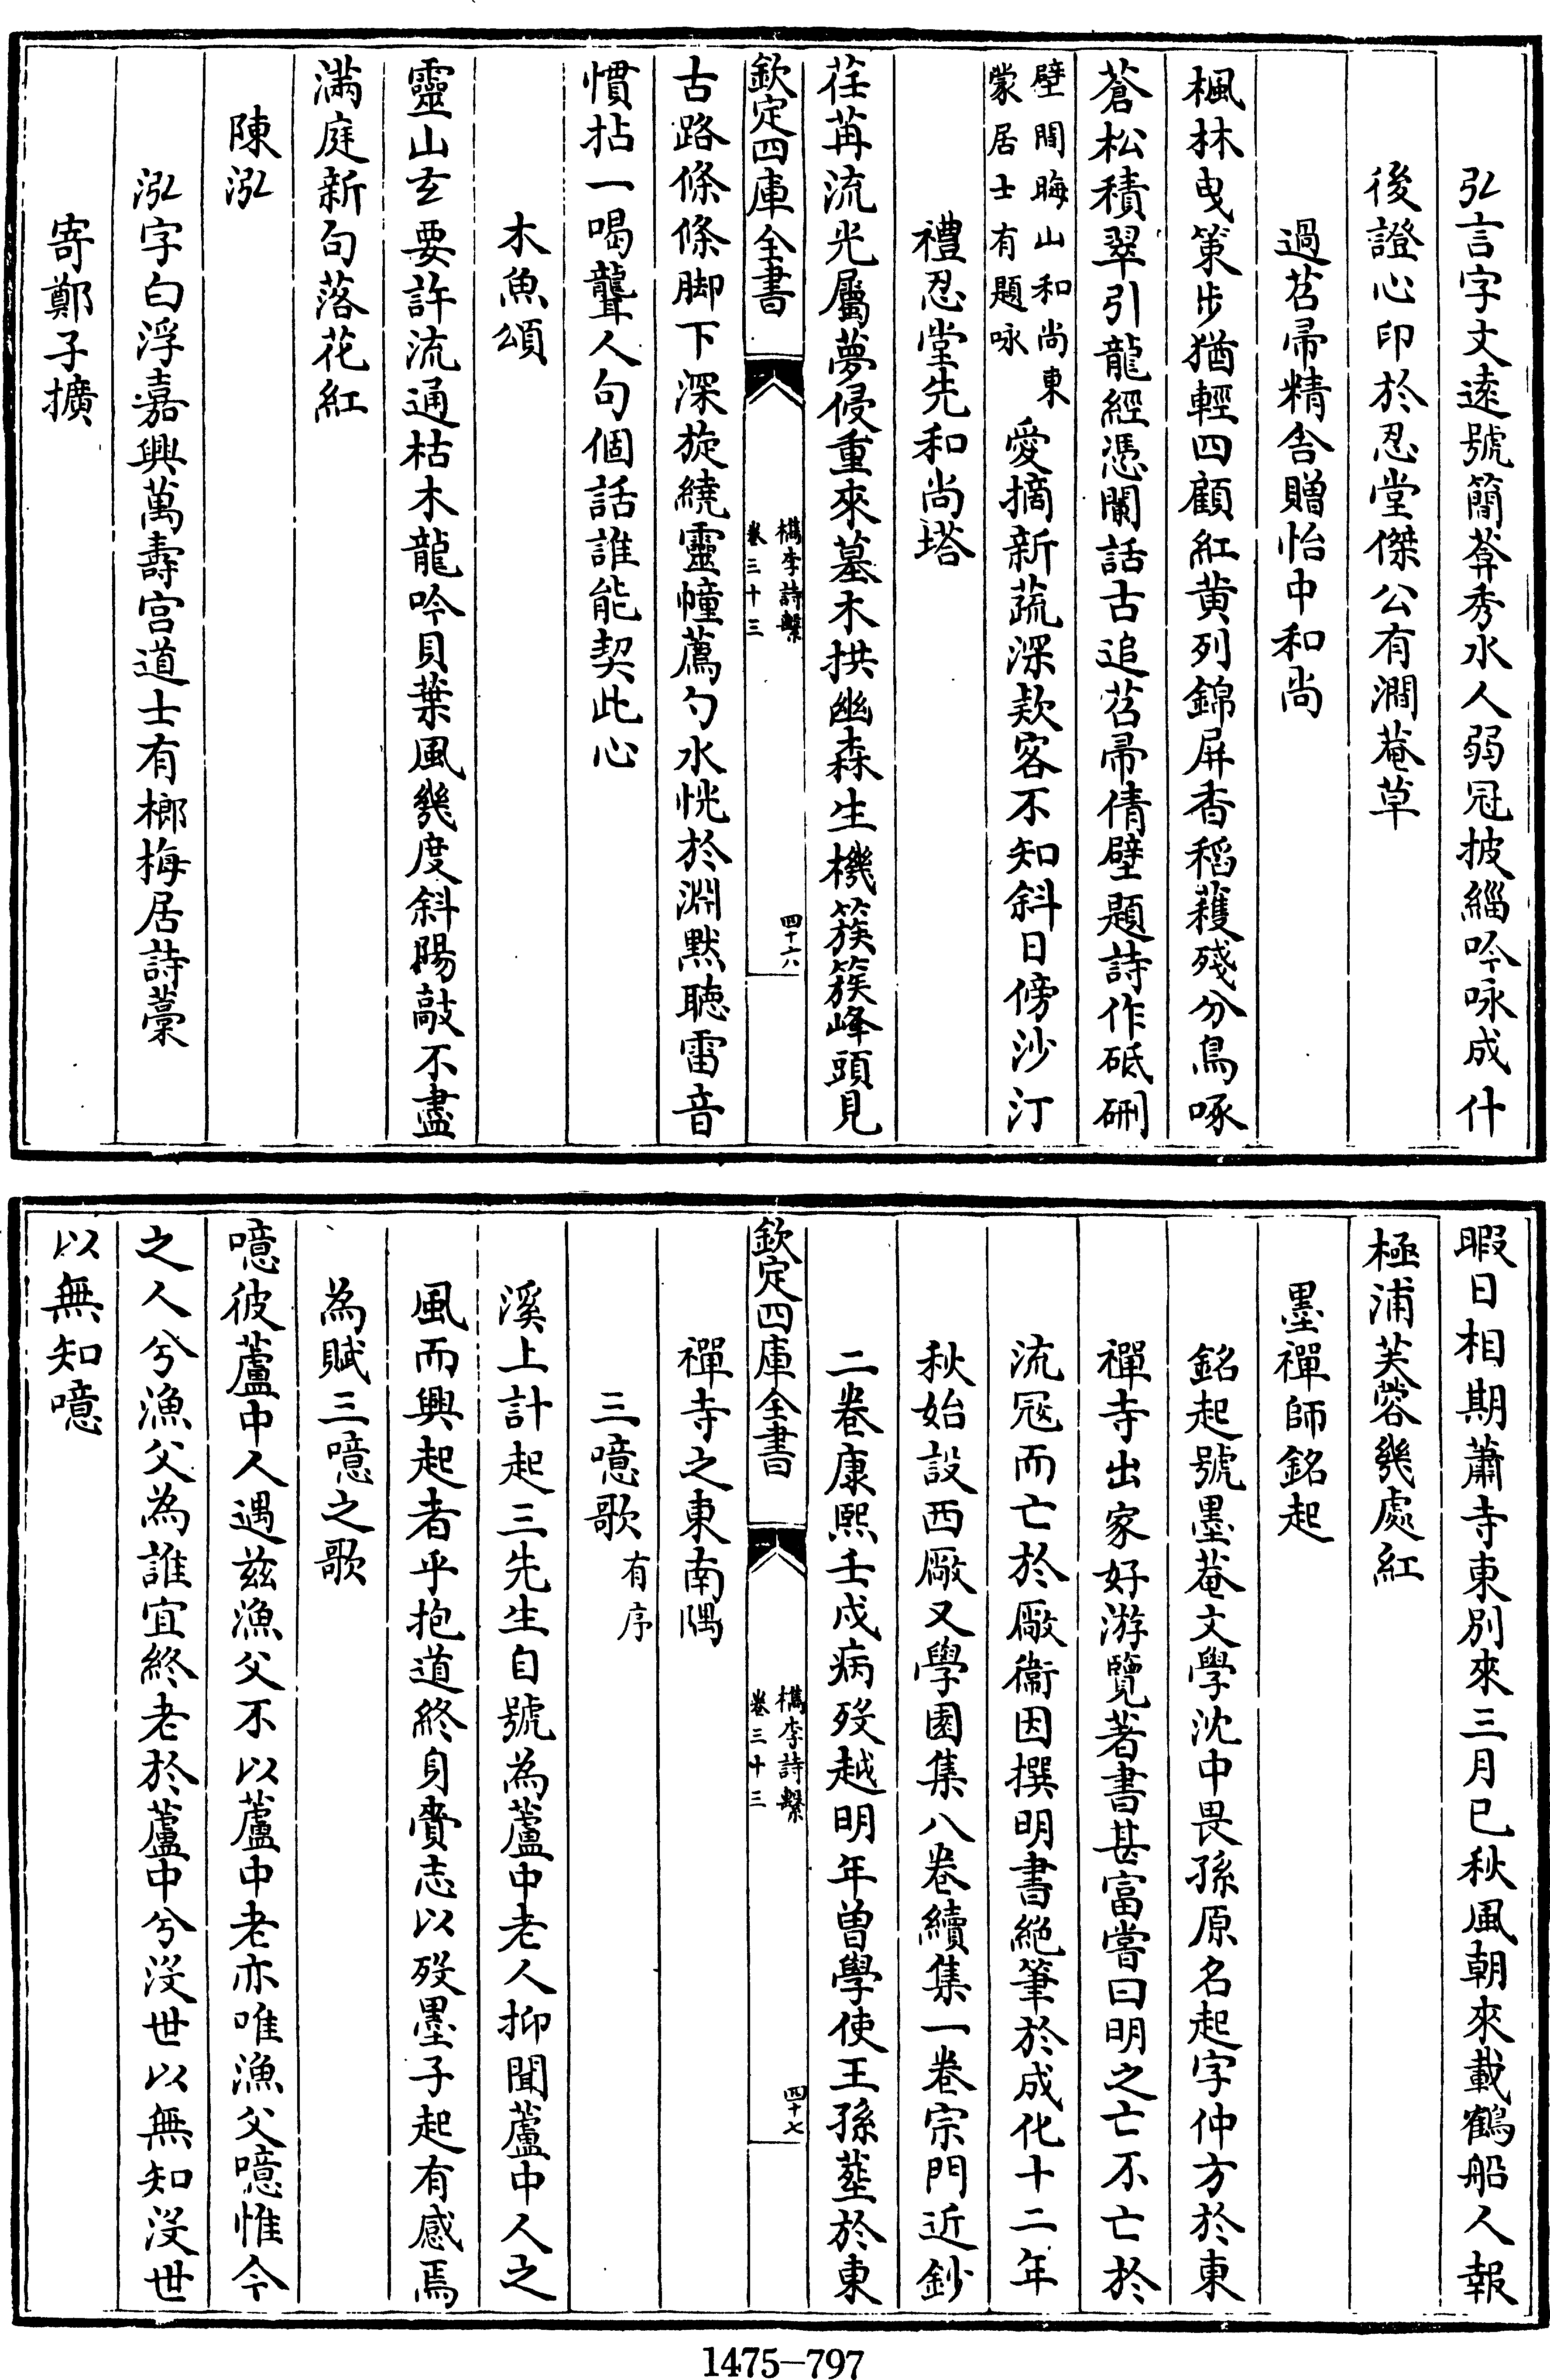 弘言字丈逺號簡葊秀水人弱冠披緇吟咏成什
後證心印於忍堂傑公有澗菴草
過苕帚精舍贈怡中和尚
楓林曵策步猶輕四顧紅黄列錦屏香稻穫殘分鳥啄
蒼松積翠引龍經憑闌話古追苕帚倩壁題詩作砥硎
壁間晦山和尚東
蒙居士有題咏
愛摘新蔬深欵客不知斜日傍沙汀
禮忍堂先和尚塔
荏苒流光屬夢侵重來墓木拱幽森生機簇簇峰頭見
欽定四庫全書
檇李詩繫
卷三十三
四十六
古路條條脚下深旋繞靈幢薦勺水恍於淵黙聴雷音
慣拈一喝聾人句個話誰能契此心
木魚頌
靈山𤣥要許流通枯木龍吟貝葉風幾度斜陽敲不盡
滿庭新句落花紅
陳泓
泓字白浮嘉興萬壽宫道士有榔梅居詩藁
寄鄭子擴
暇日相期蕭寺東別來三月已秋風朝來載鶴船人報
極浦芙蓉幾處紅
墨禪師銘起
銘起號墨菴文學沈中畏孫原名起字仲方於東
禪寺出家好游覽著書甚富嘗曰明之亡不亡於
流冦而亡於厰衞因撰明書絶筆於成化十二年
秋始設西厰又學園集八卷續集一卷宗門近鈔
二卷康熙壬戌病歿越明年曽學使王孫塟於東
欽定四庫全書
檇李詩繫
卷三十三
四十七
禪寺之東南隅
三噫歌有序
溪上計起三先生自號為蘆中老人抑聞蘆中人之
風而興起者乎抱道終身賫志以歿墨子起有感焉
為賦三噫之歌
噫彼蘆中人遇兹漁父不以蘆中老亦唯漁父噫惟今
之人兮漁父為誰宜終老於蘆中兮沒世以無知沒世
以無知噫
1475-797